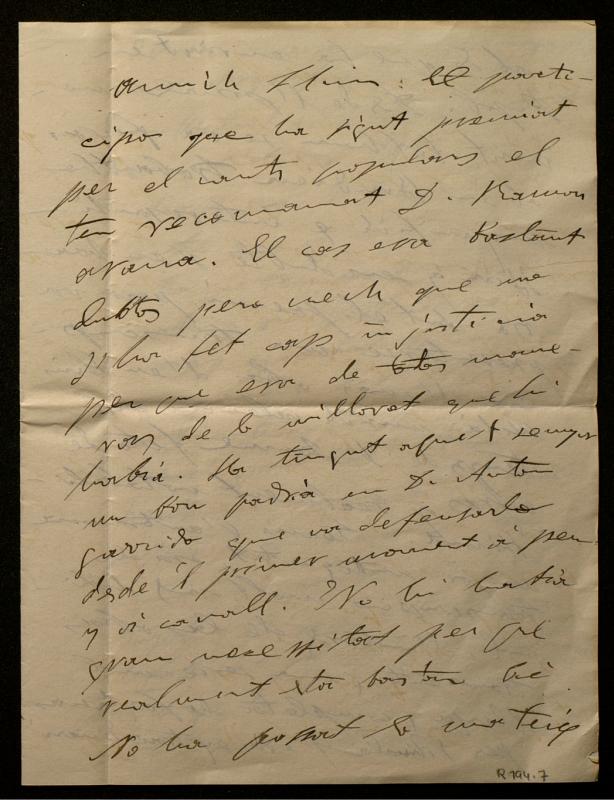 Amich Lluis: Et parti-
cipo que ha sigut premiat
per el cants populars el
teu recomanat D. Ramon
. El cas era bastant
dubtós pero vech que no
s'ha fet cap injusticia
per que era de totas mane-
ras de lo milloret que hi
habia. Ha tingut aquest sempre
un bon padrí en D. Anton
Garrido que va defensarlo
desde 'l primer moment á peu
y á cavall. No hi habia
gran necessitat per que
realment está bastan bé
No ha passat lo mateix
R 194.7